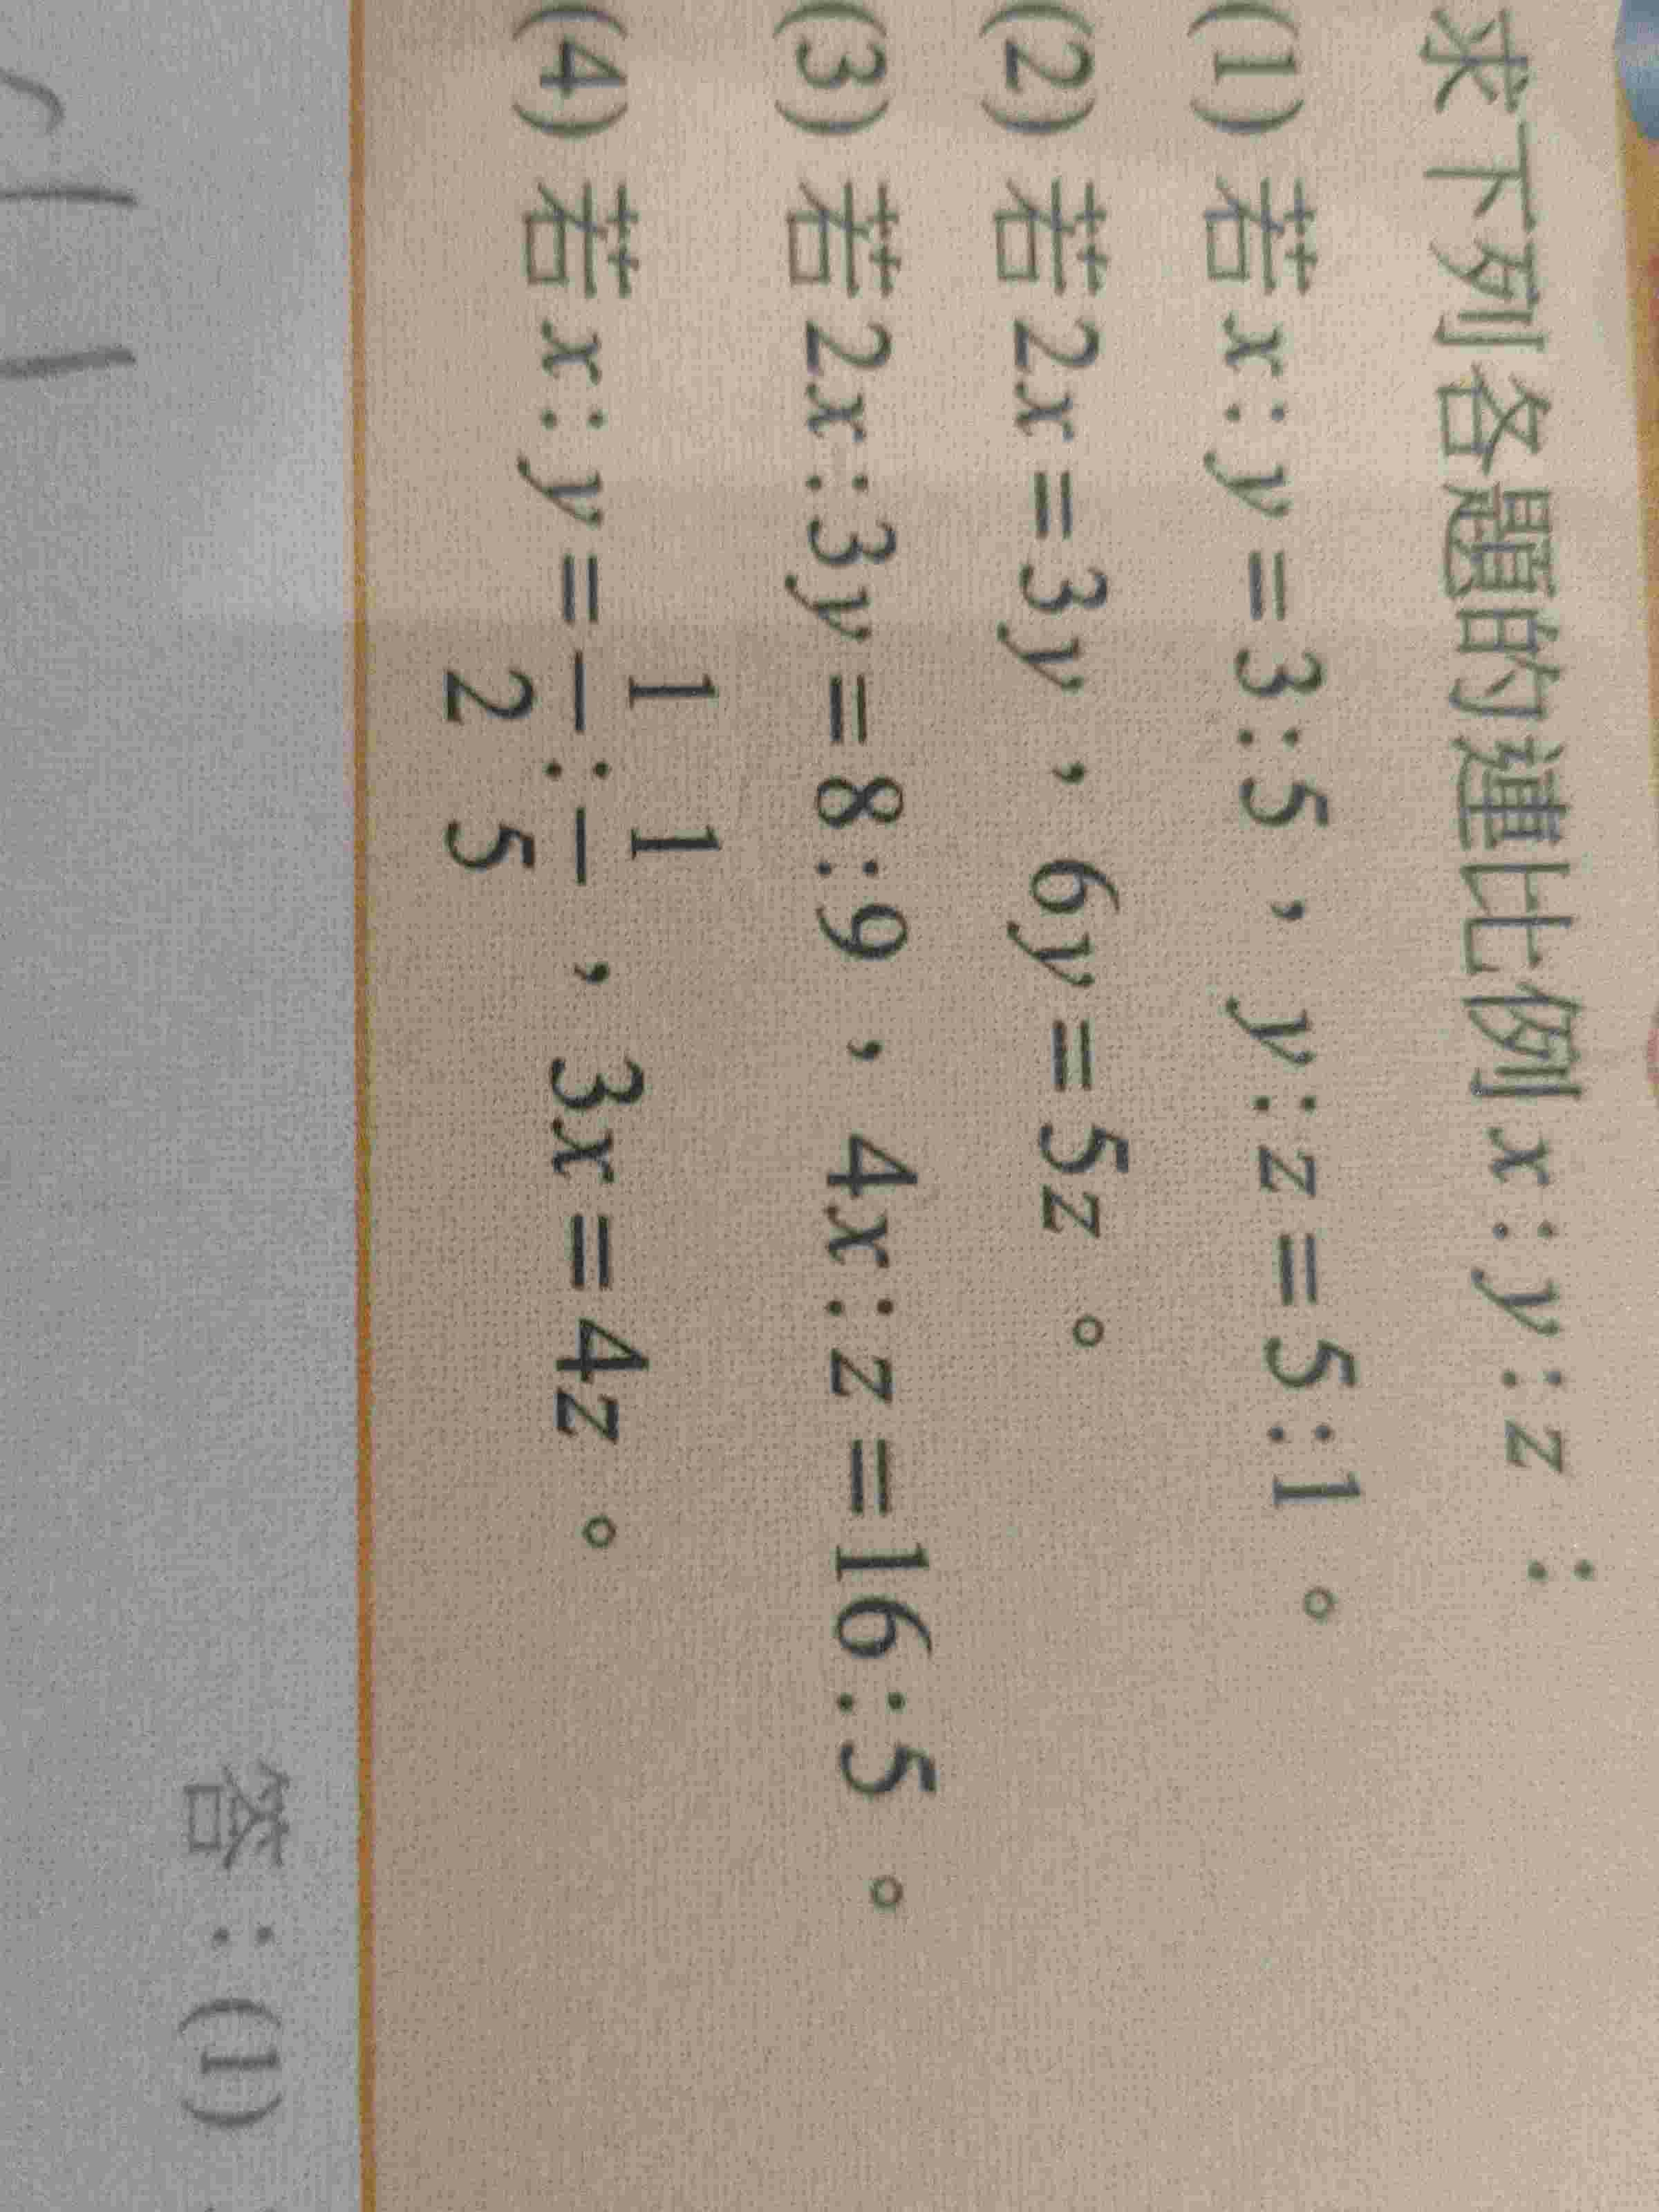 求下列各題的連比例 x:y:z：
(1) 若 x:y=3:5，y:z=5:1。
(2) 若 2x=3y，6y=5z。
(3) 若 2x:3y=8:9，4x:z=16:5。
(4) 若 x:y=1/2:1/5，3x=4z。
答：(1)